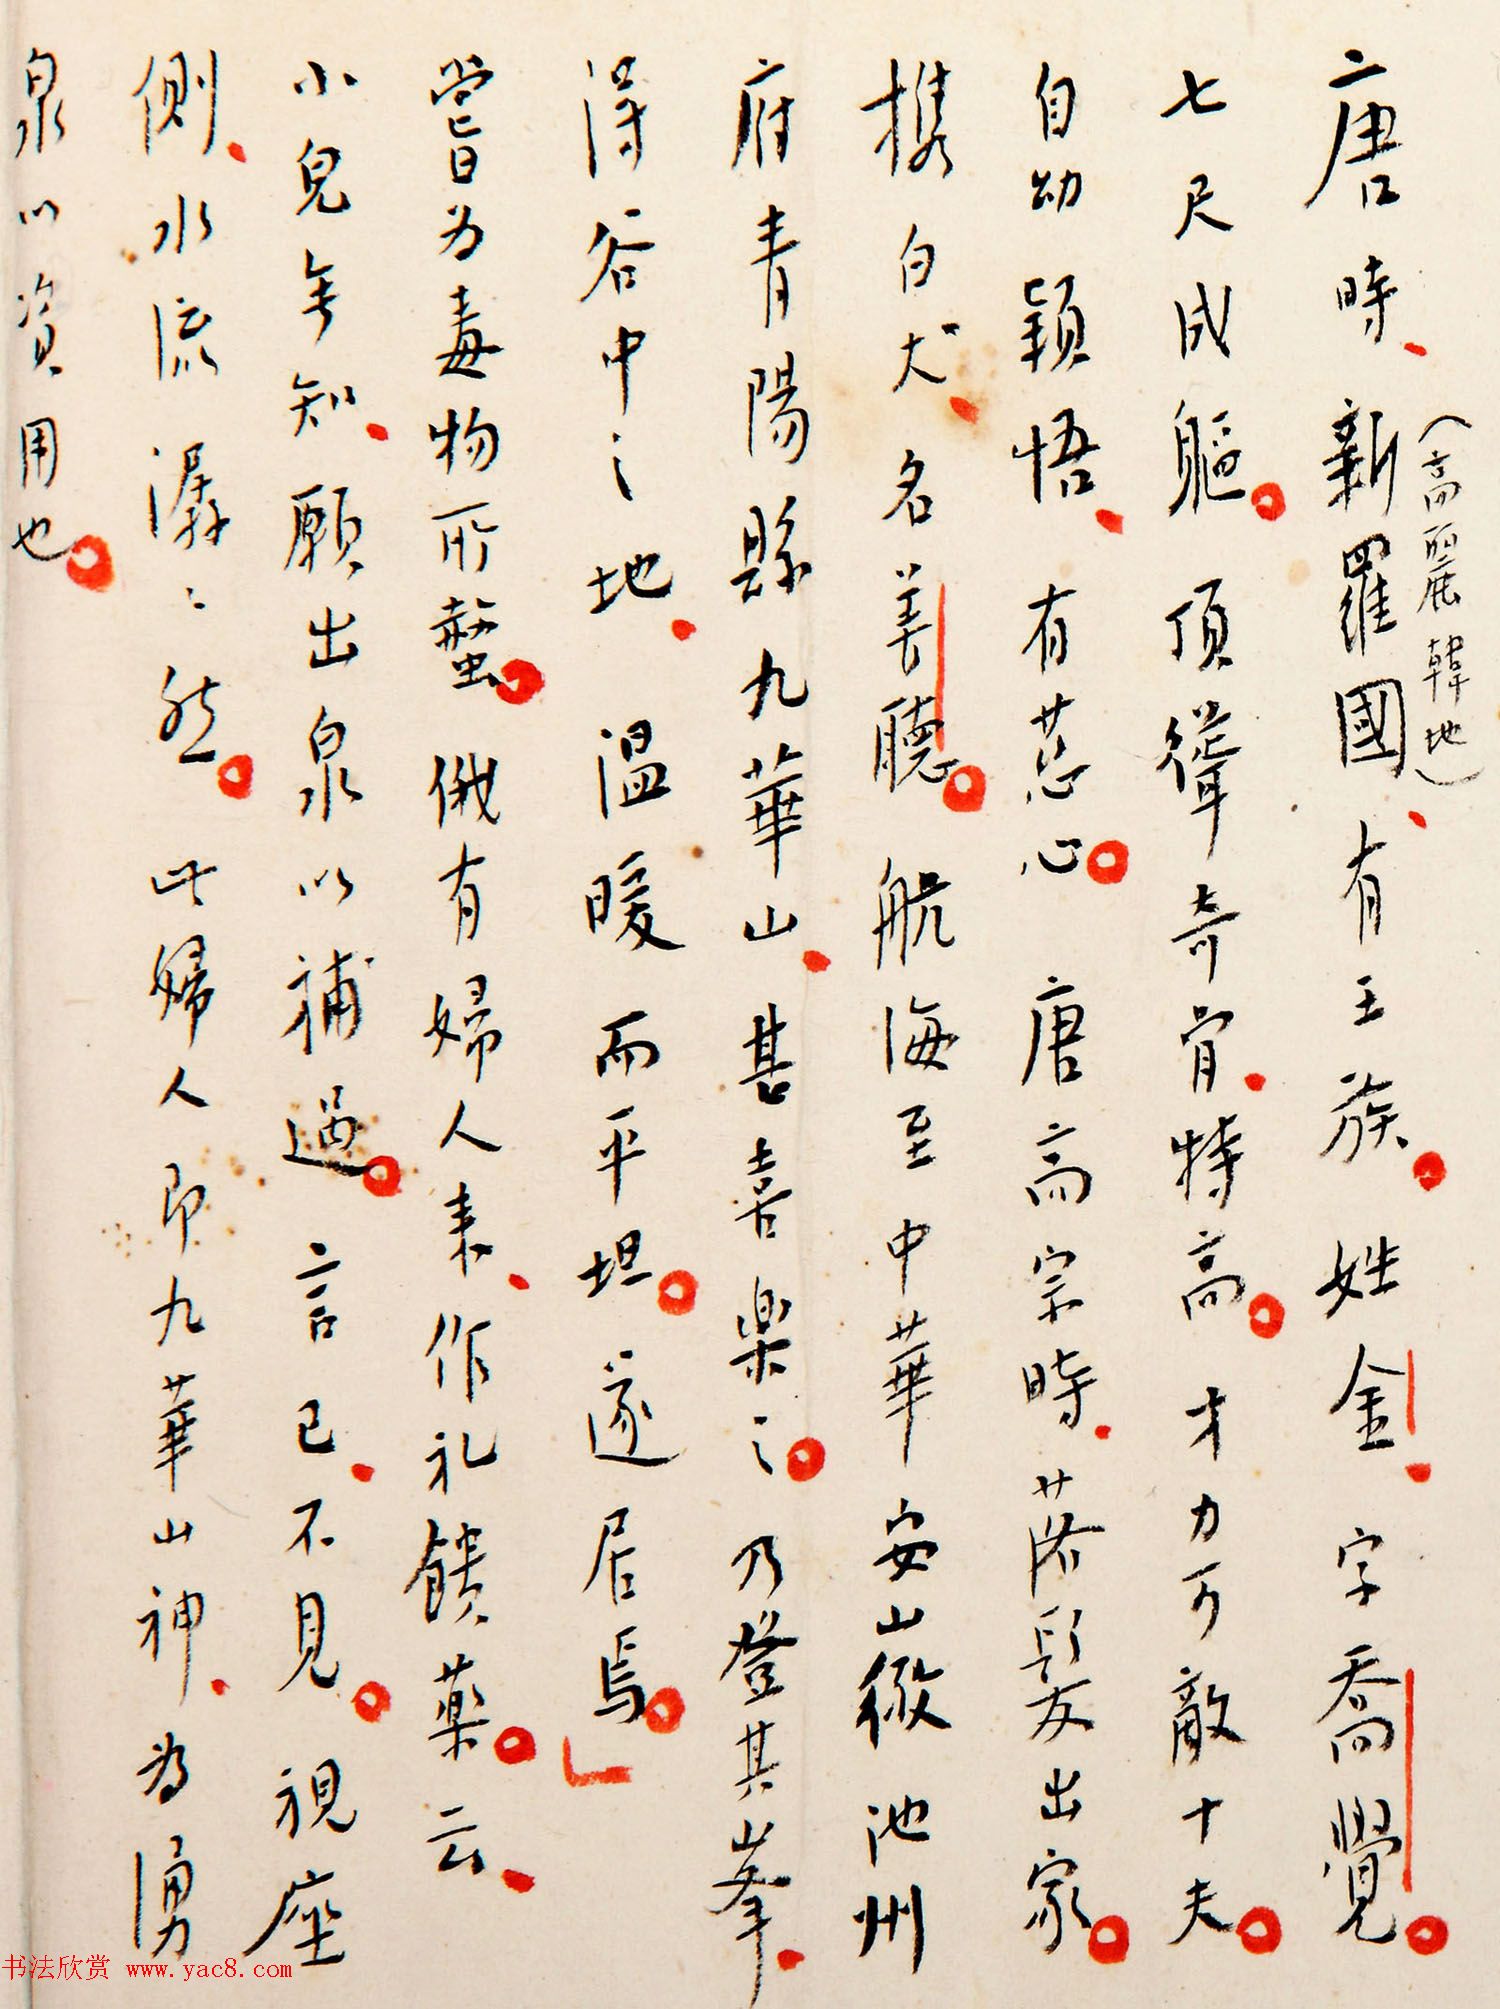 唐時、新羅國、有王族。姓金、字喬覺。
（高麗韓地）
七尺成軀。頂聳奇骨、特高。才力可敵十夫。
自幼穎悟、有慈心。唐高宗時、落髮出家。
携白犬、名善聽。航海至中華安山徽池州
府青陽縣九華山、甚喜樂之。乃登其峯、
得谷中之地、溫暖而平坦。遂居焉。
嘗為毒物所螫。俄有婦人來、作礼饋藥。云、
小兒無知、願出泉以補過。言已、不見。視座
側、水流潺〻然。此婦人即九華山神、為湧
泉以資用也。
书法欣赏 www.yac8.com